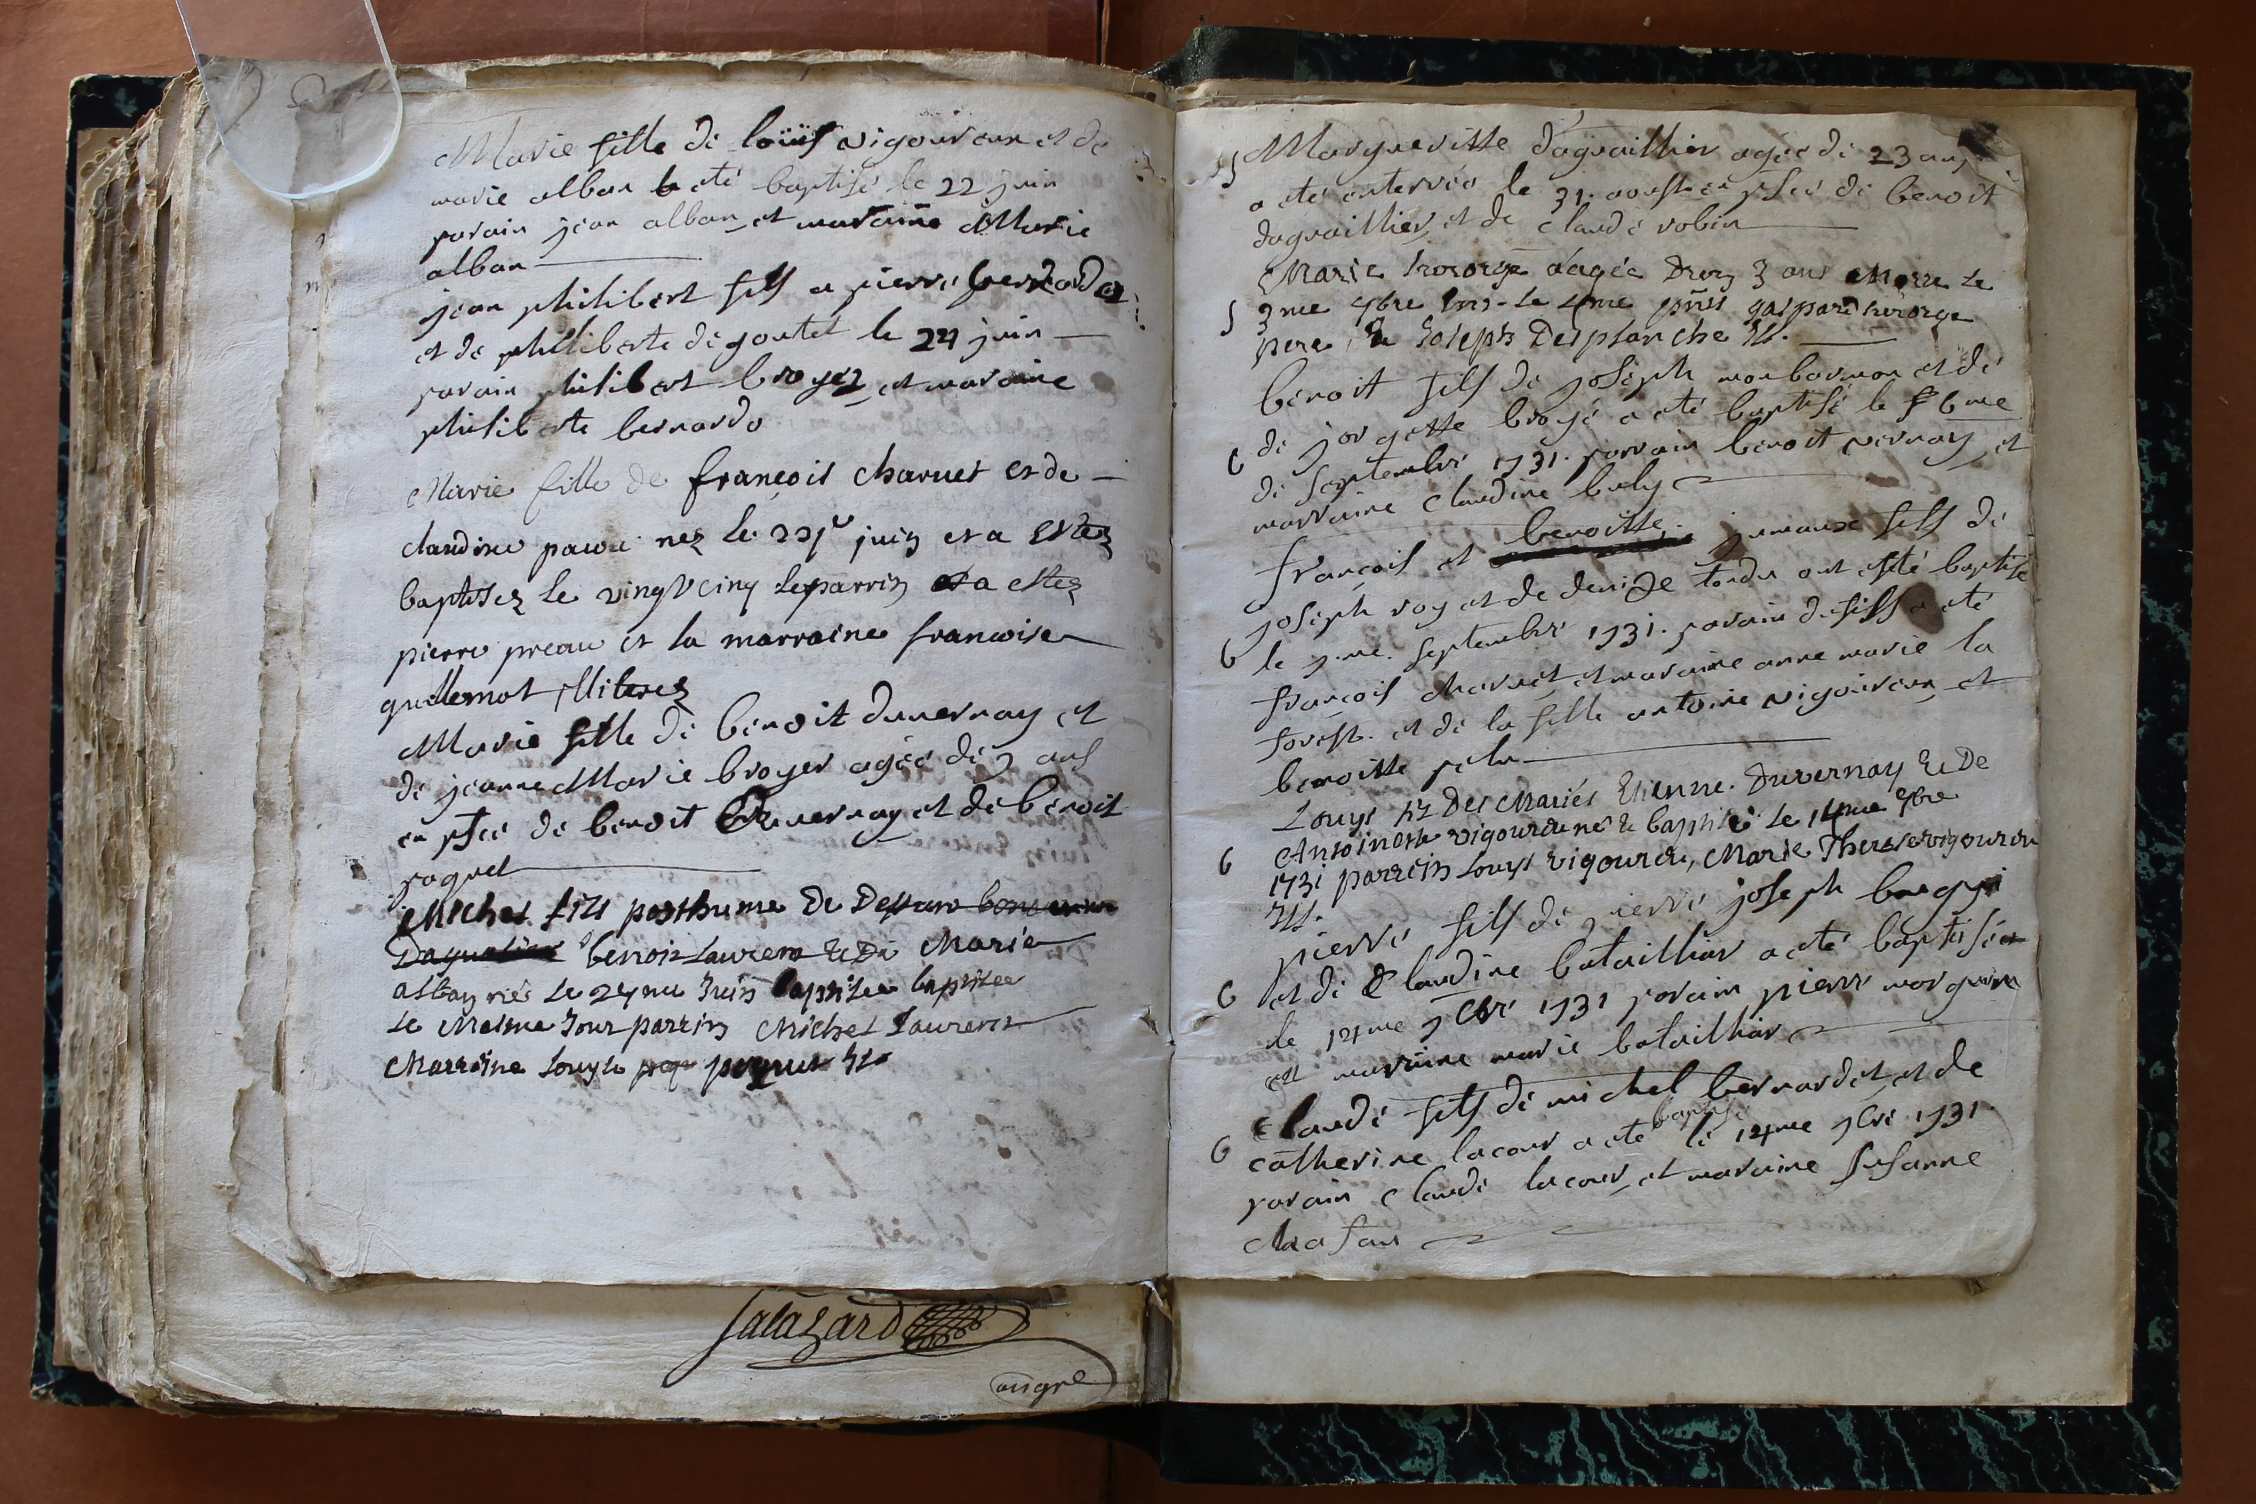 Marie fille de loüis vigoureux et de
marie alban a eté baptisé le 22 juin
parain jean alban et maraine Marie
alban
jean philibert fils a pierre bernardo
et de philiberte degoutet le 24 juin
parain philibert broyer et maraine
philiberte bernardo
Marie fille de françois charuet et de
claudine nez le juin et a estez
baptisez le vingt cinq le parrin a estez
pierre preau et la marraine francoise
guillemot illiterez
Marie fille de benoit duvernay et
de jeanne Marie broyer agée de 7 ans
en pñce de benoit duvernay et de benoit
paquet
Michel fils posthume De
benoit Laurent & De Marie
alban née Le juin baptisee
Le Mesme Jour parrin Michel Laurent
Marraine Louyse
salazard
5 Margueritte daguaillier agée de 23 ans
a eté enterrée le 31. aoust en pñce de benoit
daguaillier et de claude robin
Marie agée 3 ans Morte Le
5 3me 7bre Le 4me pñts gaspard
pere, & Joseph Desplanche
benoit fils de joseph monbarmon et de
6 de jorgette broyé a eté baptisé le 6me
de septembre 1731. parrain benoit vernay et
marraine claudine buly
françois et benoitte jumaux fils de
joseph roy et de denise tondu ont esté baptisé
6 le 7.me. septembre 1731. parain du fils a eté
françois charuet et maraine anne marie la
forest. et de la fille antoine vigoureux et
benoitte
Louys Des Mariés Etienne. Duvernay & De
6 Antoinette vigoureuse & baptisé Le 14me 7bre
1731 parrein Louys vigoureu, Marie Therese vigoureu
pierre fils de pierre joseph
6 et de Claudine batailliar a eté baptisé
le 14me 7bre 1731 parain pierre
et maraine marie bataillar
Claude fils de michel bernardet et de
6 catherine lacour a eté baptisé le 14me 7bre 1731
parain claude lacour et maraine susanne